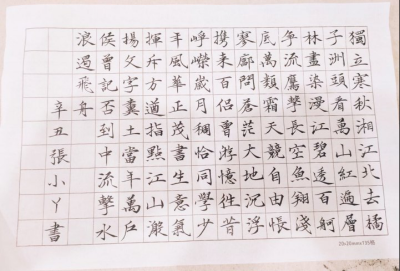 獨立寒秋湘江北去橘
子洲頭看萬山紅遍層
林盡染漫江碧透百舸
爭流鷹擊長空魚翔淺
底萬類霜天競自由悵
寥廓問蒼茫大地沉浮
携來百侶曾游憶往昔
崢嶸歲月稠恰同學少
年風華正茂書生意氣
揮斥方遒指點江山激
揚文字糞土當年萬戶
侯曾記否到中流擊水
浪遏飛舟
辛丑張小丫書